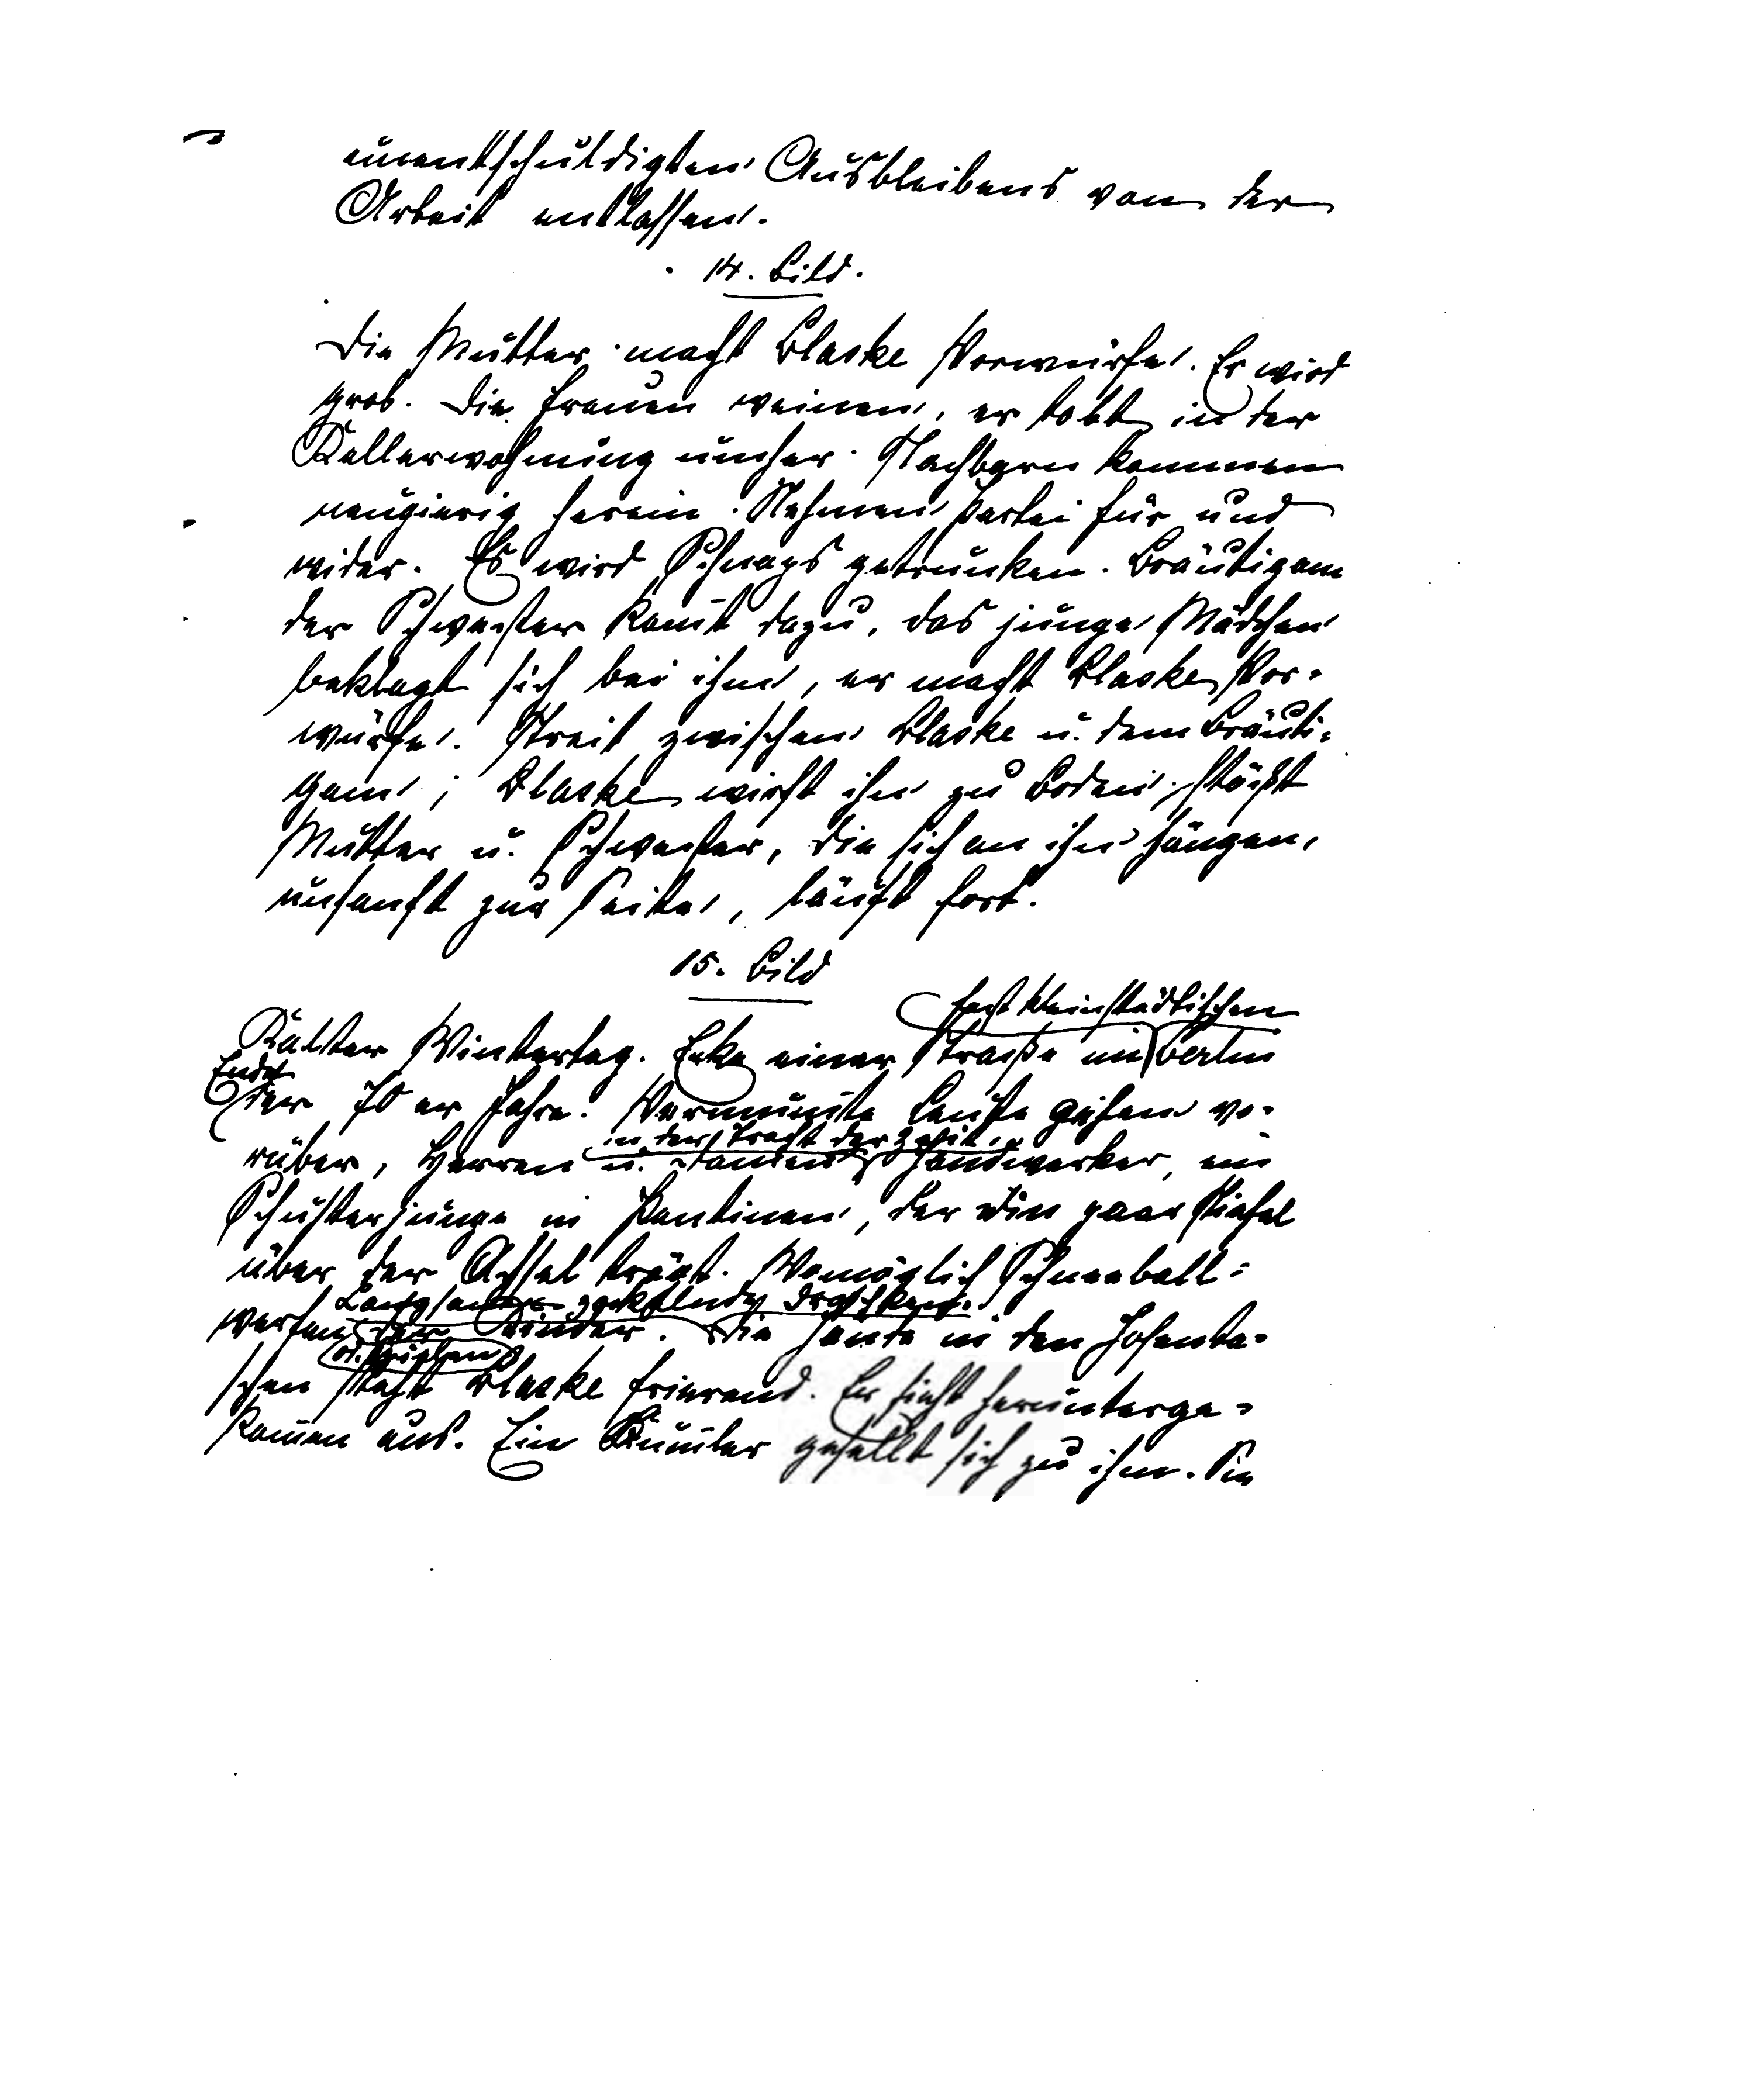 unentschuldigten Ausbleibens von der
Arbeit entlassen.
14. Bild.
Die Mutter macht Blaske Vorwürfe. Er wird
grob. Die Frauen weinen, er tobt in der
Kellerwohnung umher. Nachbarn kommen
neugierig herein. Nehmen Partei für und
wider. Es wird Schnaps getrunken. Bräutigam
der Schwester kom̅t dazu, das junge Mädchen
beklagt sich bei ihm, er macht Blaske Vor-
würfe. Streit zwischen Blaske u. dem Bräuti-
gam; Blaske wirft ihn zu Boden, stößt
Mutter u. Schwester, die sich an ihn hängen,
unsanft zur Seite, läuft fort.
15. Bild
fast kleinstädtischen
Kalter Wintertag. Ecke einer Straße im Berlin
Ende
der 70er Jahre. Vermum̅te Leute gehen vo-
in der Tracht der Zeit,
rüber, Herren u. Damen Handwerker, ein
Schusterjunge in Pantinen, der ein paar Stiefel
über der Achsel trägt. Womöglich Schneeball-
Langsam zockelnde Droschken.
werfen der Kinder. Die Hände in den Hosenta-
od. Spielen
schen steht Blaske frierend. Er sieht herunterge-
kom̅en aus. Ein Kum̅ler gesellt sich zu ihm. Sie